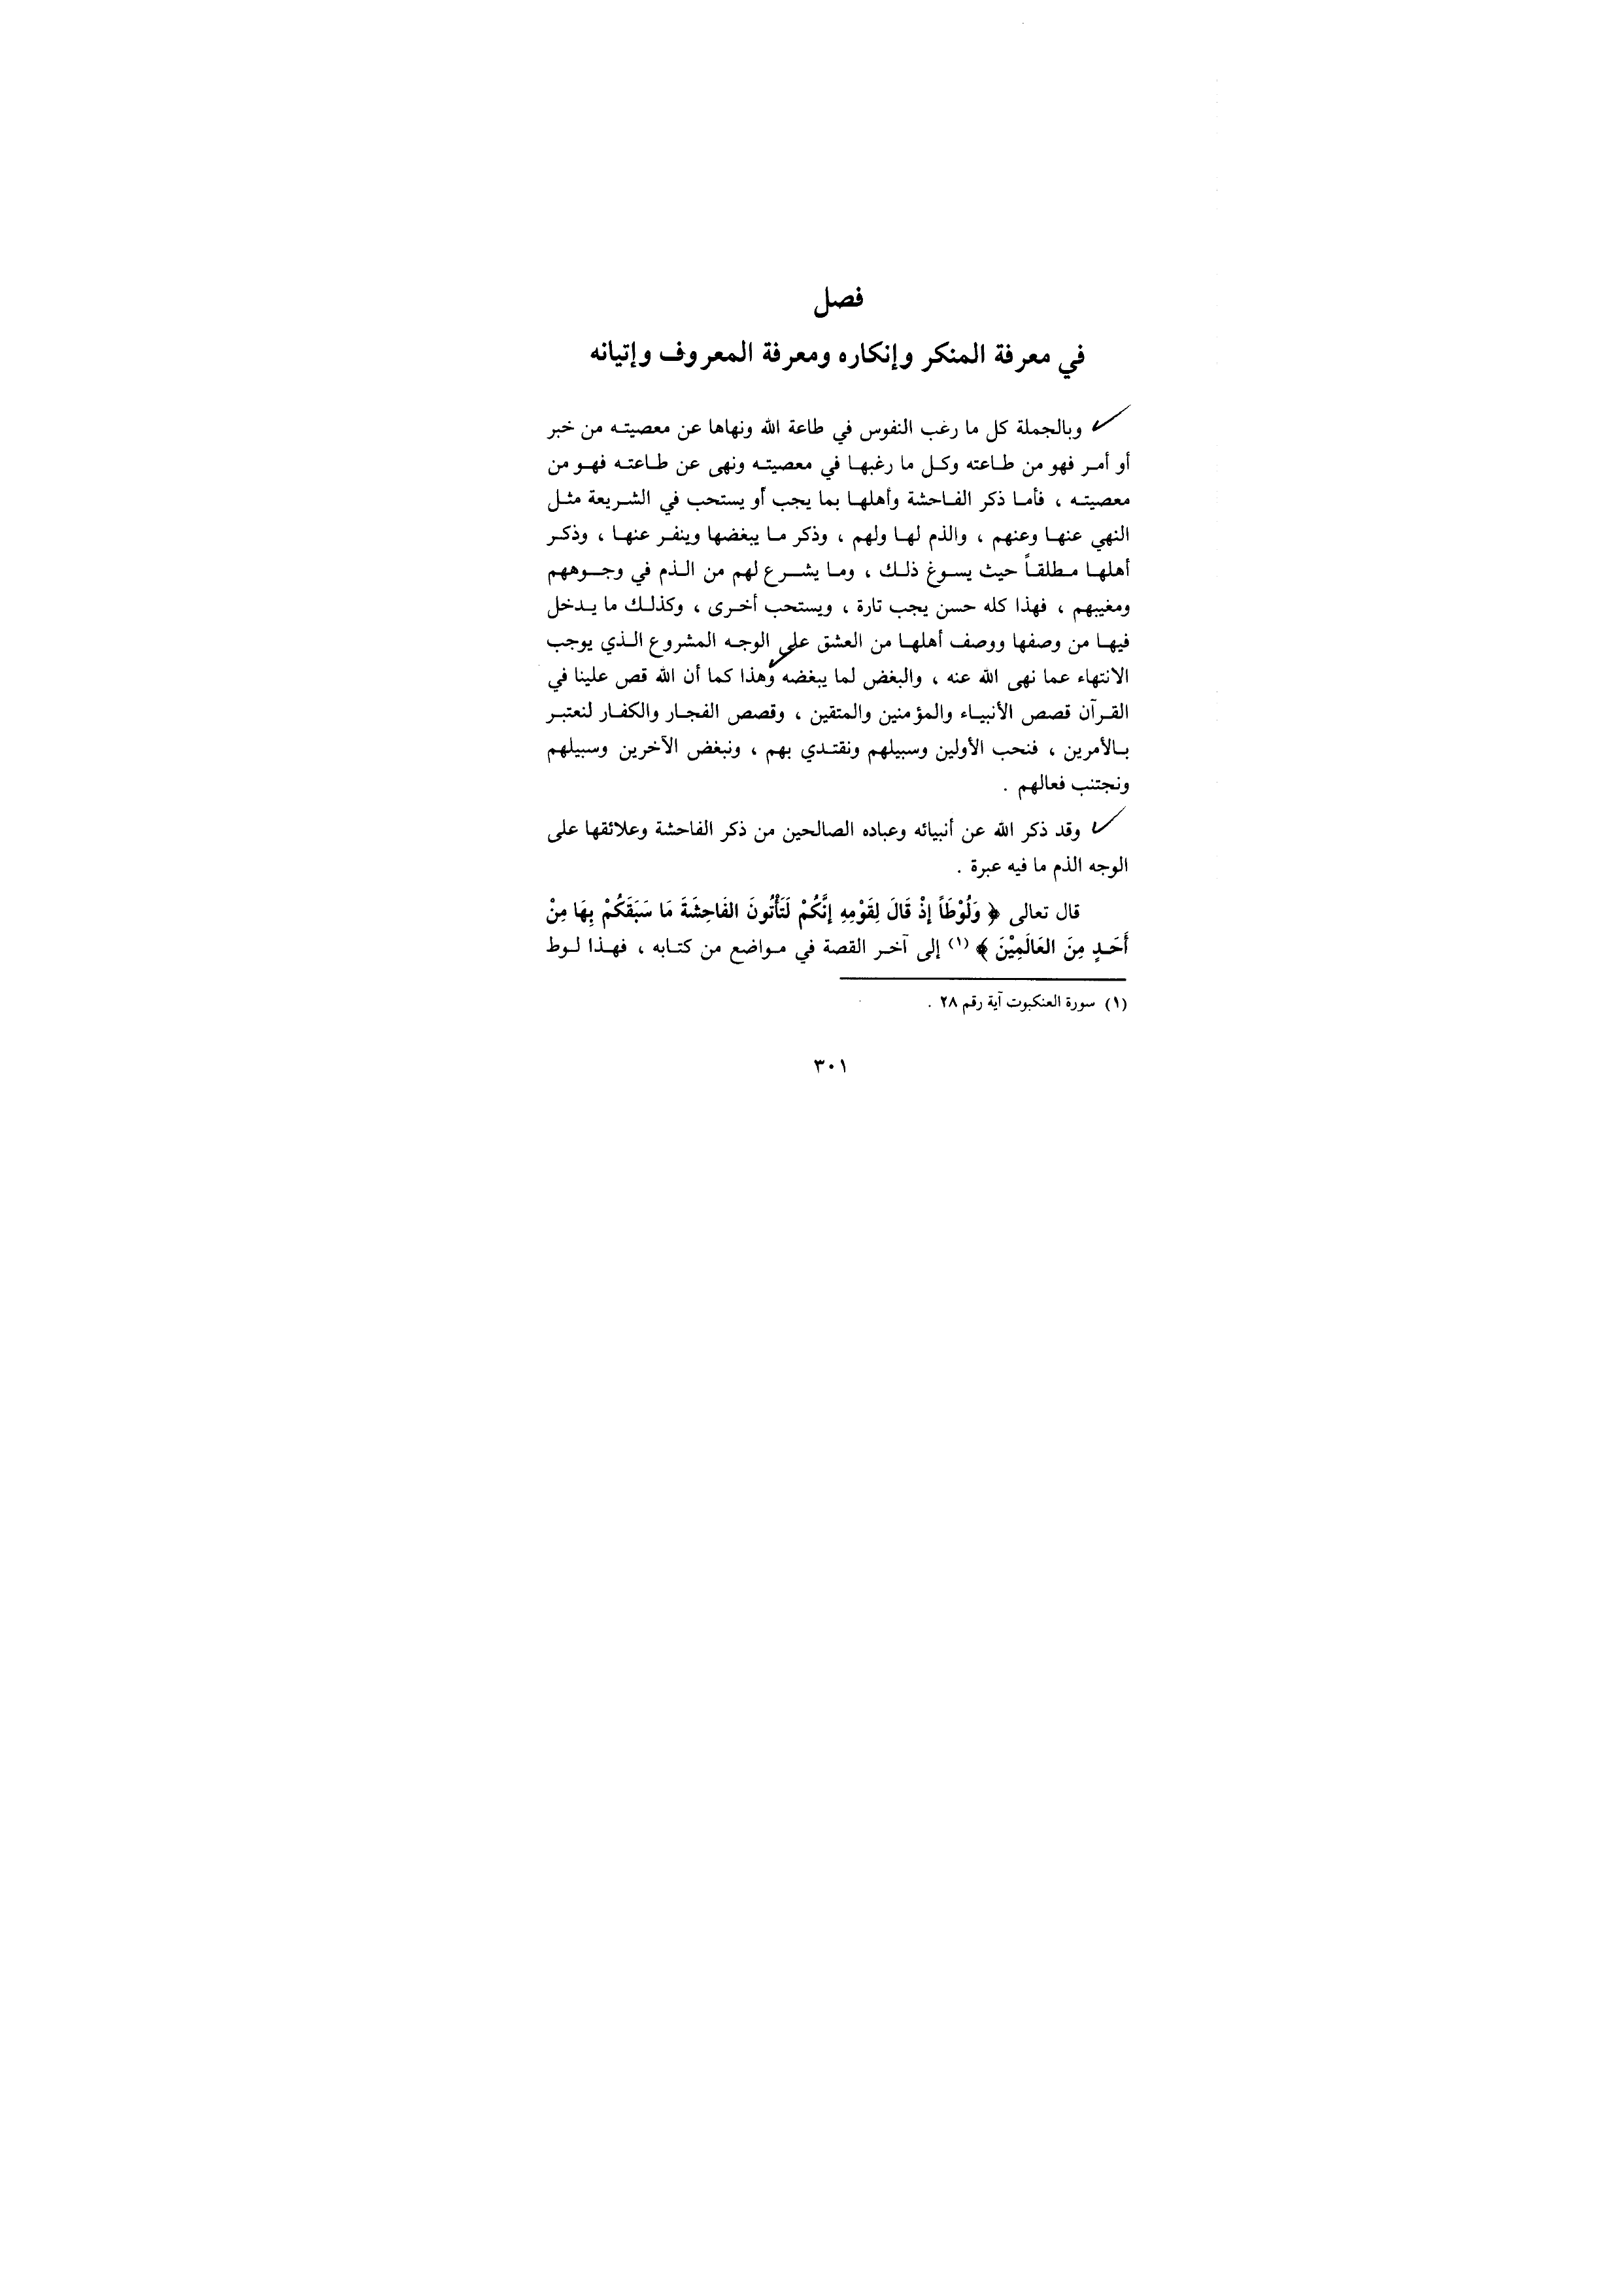 فصل
في معرفة المنكر وإنكاره ومعرفة المعروف وإتيانه
وبالجملة كل ما رغب النفوس في طاعة الله ونهاها عن معصيته من خبر
أو أمر فهو من طاعته وكل ما رغبها في معصيته ونهى عن طاعته فهو من
معصيته ، فأما ذكر الفاحشة وأهلها بما يجب أو يستحب في الشريعة مثل
النهي عنها وعنهم ، والذم لها ولهم ، وذكر ما يبغضها وينفر عنها ، وذكر
أهلها مطلقاً حيث يسوغ ذلك ، وما يشرع لهم من الذم في وجوههم
ومغيبهم ، فهذا كله حسن يجب تارة ، ويستحب أخرى ، وكذلك ما يدخل
فيها من وصفها ووصف أهلها من العشق على الوجه المشروع الذي يوجب
الانتهاء عما نهى الله عنه ، والبغض لما يبغضه وهذا كما أن الله قص علينا في
القرآن قصص الأنبياء والمؤمنين والمتقين ، وقصص الفجار والكفار لنعتبر
بالأمرين ، فنحب الأولين وسبيلهم ونقتدي بهم ، ونبغض الآخرين وسبيلهم
ونجتنب فعالهم .
وقد ذكر الله عن أنبيائه وعباده الصالحين من ذكر الفاحشة وعلائقها على
الوجه الذم ما فيه عبرة .
قال تعالى ﴿ وَلُوْطَاً إذْ قَالَ لِقَوْمِهِ إنَّكُمْ لَتَأْتُونَ الفَاحِشَةَ مَا سَبَقَكُمْ بِهَا مِنْ
أَحَدٍ مِنَ العَالَمِيْنَ ﴾ (١) إلى آخر القصة في مواضع من كتابه ، فهذا لوط
(١) سورة العنكبوت آية رقم ٢٨ .
٣٠١